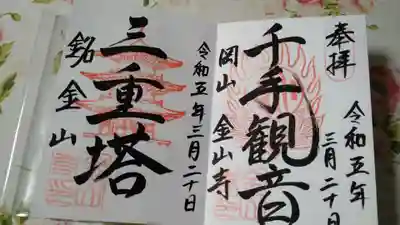 奉拝
令和五年
三月二十日
千手観音
岡山
金山寺
令和五年三月二十日
三重塔
銘金山